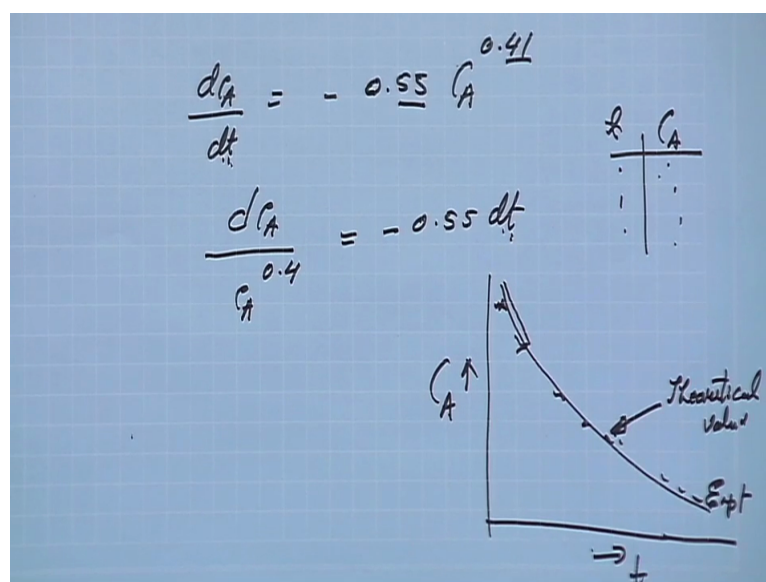 dC_A / dt = - 0.55 C_A^0.41
t | C_A
dC_A / C_A^0.4 = - 0.55 dt
C_A ↑
Theoretical
value
Expt
→ t